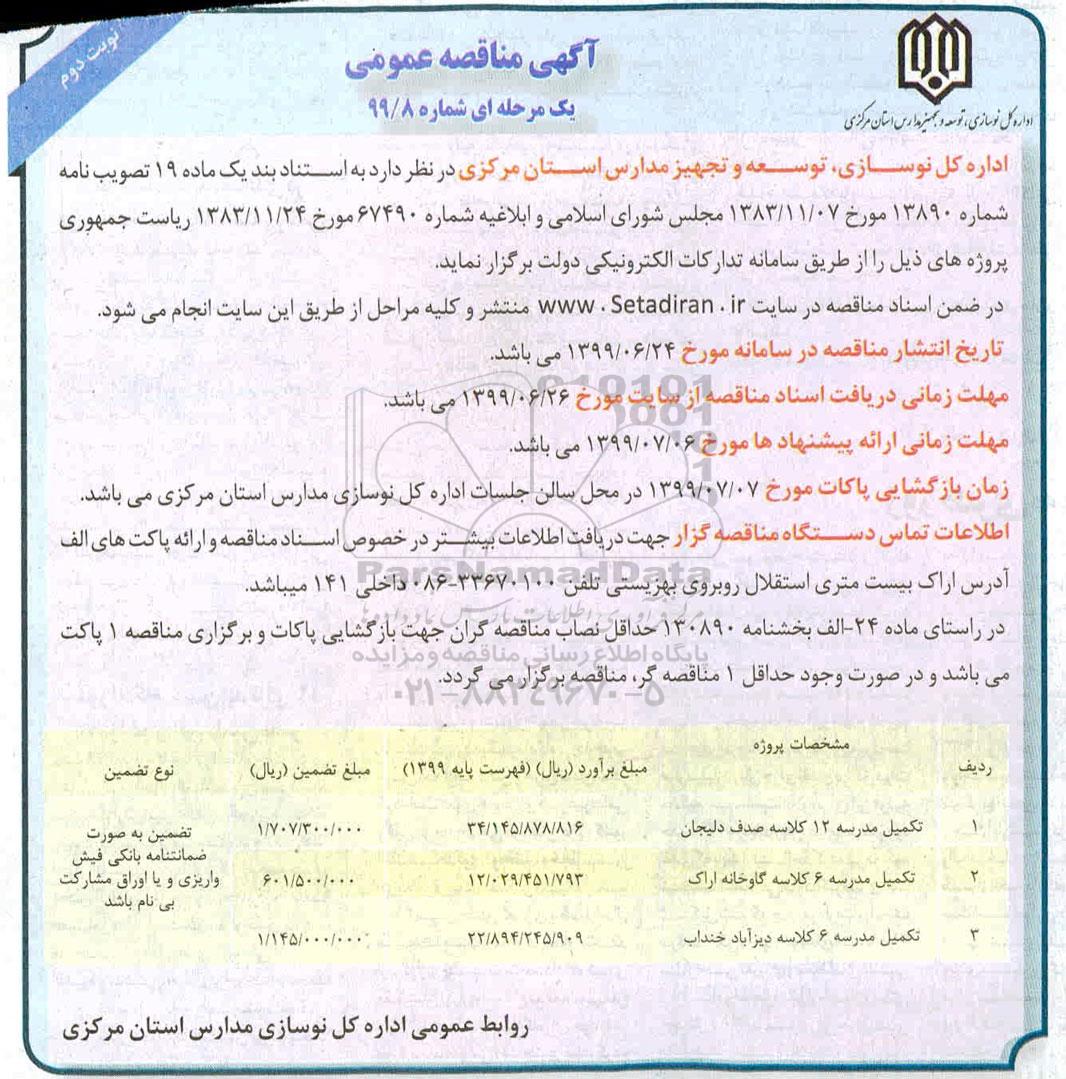 نوبت دوم
آگهی مناقصه عمومی
یک مرحله ای شماره ۹۹/۸
اداره کل نوسازی، توسعه و تجهیز مدارس استان مرکزی
اداره کل نوسازی، توسعه و تجهیز مدارس استان مرکزی در نظر دارد به استناد بند یک ماده ۱۹ تصویب نامه
شماره ۱۳۸۹۰ مورخ ۱۳۸۳/۱۱/۰۷ مجلس شورای اسلامی و ابلاغیه شماره ۶۷۴۹۰ مورخ ۱۳۸۳/۱۱/۲۴ ریاست جمهوری
پروژه های ذیل را از طریق سامانه تدارکات الکترونیکی دولت برگزار نماید.
در ضمن اسناد مناقصه در سایت www.Setadiran.ir منتشر و کلیه مراحل از طریق این سایت انجام می شود.
تاریخ انتشار مناقصه در سامانه مورخ ۱۳۹۹/۰۶/۲۴ می باشد.
مهلت زمانی دریافت اسناد مناقصه از سایت مورخ ۱۳۹۹/۰۶/۲۶ می باشد.
مهلت زمانی ارائه پیشنهاد ها مورخ ۱۳۹۹/۰۷/۰۶ می باشد.
زمان بازگشایی پاکات مورخ ۱۳۹۹/۰۷/۰۷ در محل سالن جلسات اداره کل نوسازی مدارس استان مرکزی می باشد.
اطلاعات تماس دستگاه مناقصه گزار جهت دریافت اطلاعات بیشتر در خصوص اسناد مناقصه و ارائه پاکت های الف
آدرس اراک بیست متری استقلال روبروی بهزیستی تلفن ۳۳۶۷۰۱۰۰-۰۸۶ داخلی ۱۴۱ میباشد.
ParsNamadData
در راستای ماده ۲۴-الف بخشنامه ۱۳۰۸۹۰ حداقل نصاب مناقصه گران جهت بازگشایی پاکات و برگزاری مناقصه ۱ پاکت
پایگاه اطلاع رسانی مناقصه و مزایده
می باشد و در صورت وجود حداقل ۱ مناقصه گر، مناقصه برگزار می گردد.
۰۲۱-۸۸۳۴۹۶۷۰-۵
ردیف مشخصات پروژه مبلغ برآورد (ریال) (فهرست پایه ۱۳۹۹) مبلغ تضمین (ریال) نوع تضمین
۱ تکمیل مدرسه ۱۲ کلاسه صدف دلیجان ۳۴/۱۴۵/۸۷۸/۸۱۶ ۱/۷۰۷/۳۰۰/۰۰۰ تضمین به صورت
ضمانتنامه بانکی فیش
۲ تکمیل مدرسه ۶ کلاسه گاوخانه اراک ۱۲/۰۲۹/۴۵۱/۷۹۳ ۶۰۱/۵۰۰/۰۰۰ واریزی و یا اوراق مشارکت
بی نام باشد
۳ تکمیل مدرسه ۶ کلاسه دیزآباد خنداب ۲۲/۸۹۴/۲۴۵/۹۰۹ ۱/۱۴۵/۰۰۰/۰۰۰
روابط عمومی اداره کل نوسازی مدارس استان مرکزی